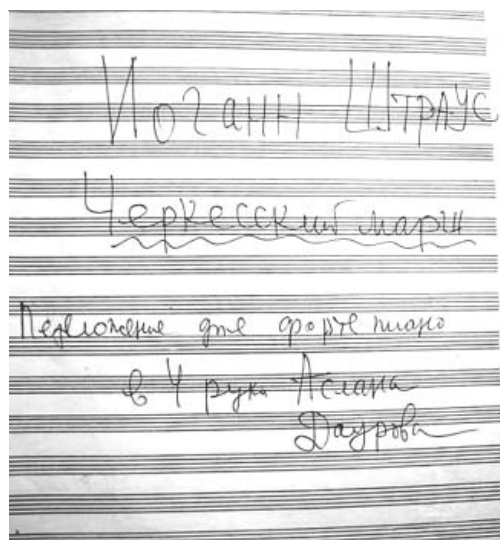 Иоганн Штраус
Черкесский марш
Переложение для фортепиано
в 4 руки Аслана
Даурова